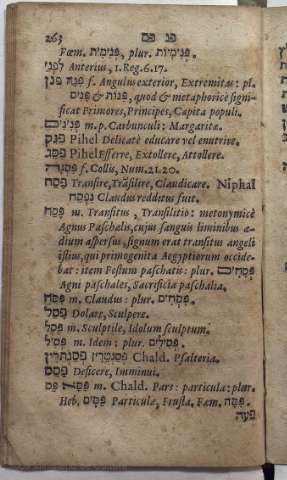 263 פנ פס
Fœm. פְּנִימִית, plur. פְּנִימִיּוֹת
לִפְנֵי Anterius, 1. Reg. 6. 17.
פִּנָּה פנן f. Angulus exterior, Extremitas: pl.
פִּנּוֹת & פִּנִּים, quod & metaphoricè signi-
ficat Primores, Principes, Capita populi.
פְּנִינִים m. p. Carbunculi: Margaritæ.
פנק Pihel Delicatè educare vel enutrire.
פסג Pihel Efferre, Extollere, Attollere.
פִּסְגָּה f. Collis, Num. 21. 20.
פסח Transire, Trãsilire, Claudicare. Niphal
נִפְסַח Claudus redditus fuit.
פֶּסַח m. Transitus, Transilitio: metonymicè
Agnus Paschalis, cujus sanguis liminibus æ-
dium aspersus, signum erat transitus angeli
istius, qui primogenita Aegyptiorum occide-
bat: item Festum paschatis: plur. פְּסָחִים
Agni paschales, Sacrificia paschalia.
פִּסֵּחַ m. Claudus: plur. פִּסְחִים.
פסל Dolare, Sculpere.
פֶּסֶל m. Sculptile, Idolum sculptum.
פָּסִיל m. Idem: plur. פְּסִילִים.
פְּסַנְטֵרִין פְּסַנְתֵּרִין Chald. Psalteria.
פסס Deficere, Imminui.
פַּס m. Chald. Pars: particula: plur.
Heb. פַּסִּים Particulæ, Frusta. Fœm. פִּסָּה.
פעה